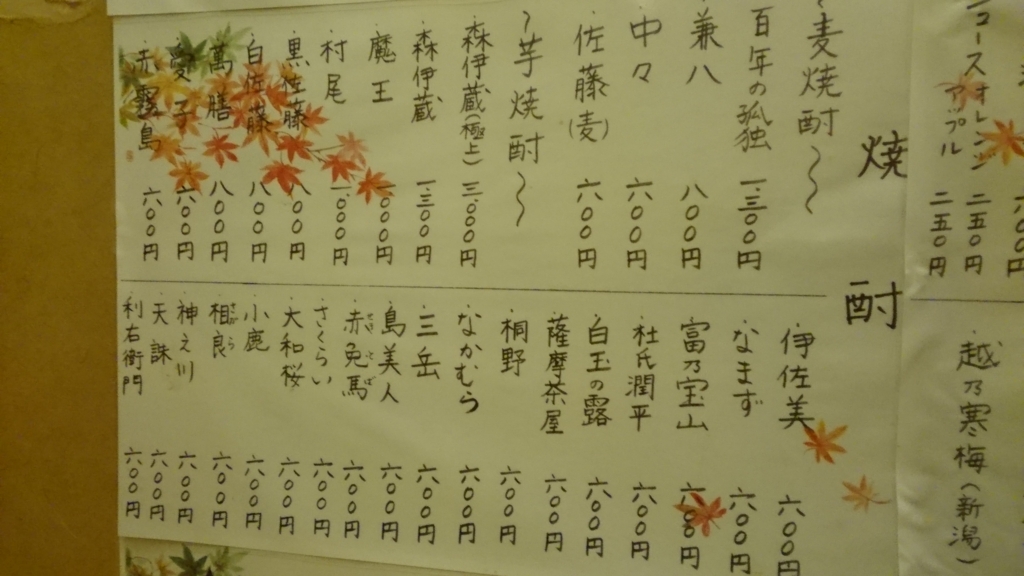 ュースオレンジ 二五〇円
アップル 二五〇円
越乃寒梅(新潟)
焼酎
〜麦焼酎〜
百年の孤独 一、三〇〇円
兼八 八〇〇円
中々 六〇〇円
佐藤(麦) 六〇〇円
〜芋焼酎〜
森伊蔵(極上) 三、〇〇〇円
森伊蔵 一、三〇〇円
魔王 一、〇〇〇円
村尾 一、〇〇〇円
黒佐藤 八〇〇円
白佐藤 八〇〇円
萬膳 八〇〇円
愛子 六〇〇円
赤霧島 六〇〇円
伊佐美 六〇〇円
なまず 六〇〇円
富乃宝山 六〇〇円
杜氏潤平 六〇〇円
白玉の露 六〇〇円
薩摩茶屋 六〇〇円
桐野 六〇〇円
なかむら 六〇〇円
三岳 六〇〇円
島美人 六〇〇円
赤兎馬 六〇〇円
さくらい 六〇〇円
大和桜 六〇〇円
小鹿 六〇〇円
相良 六〇〇円
神え川 六〇〇円
天誅 六〇〇円
利右衛門 六〇〇円